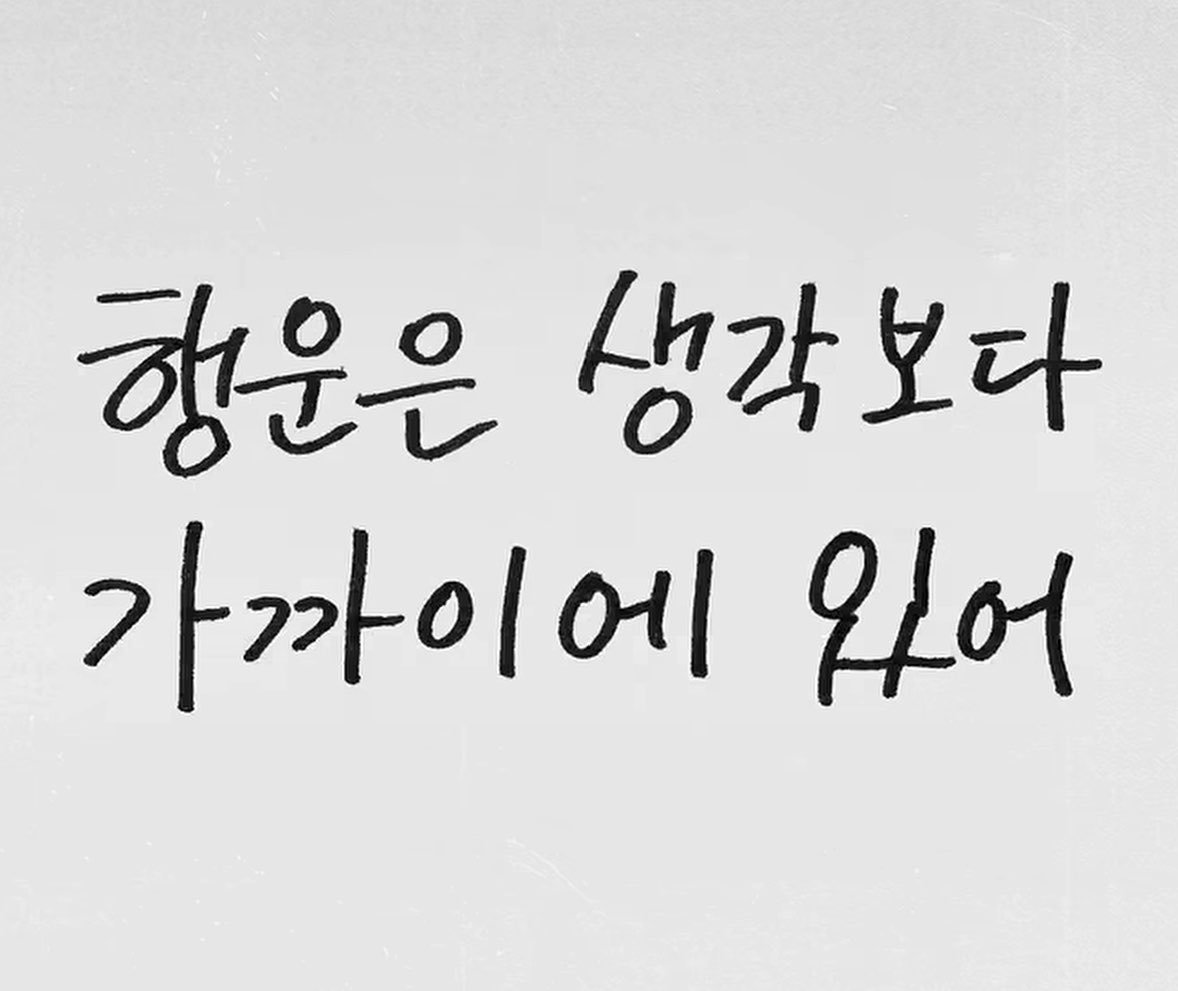 행운은 생각보다
가까이에 있어